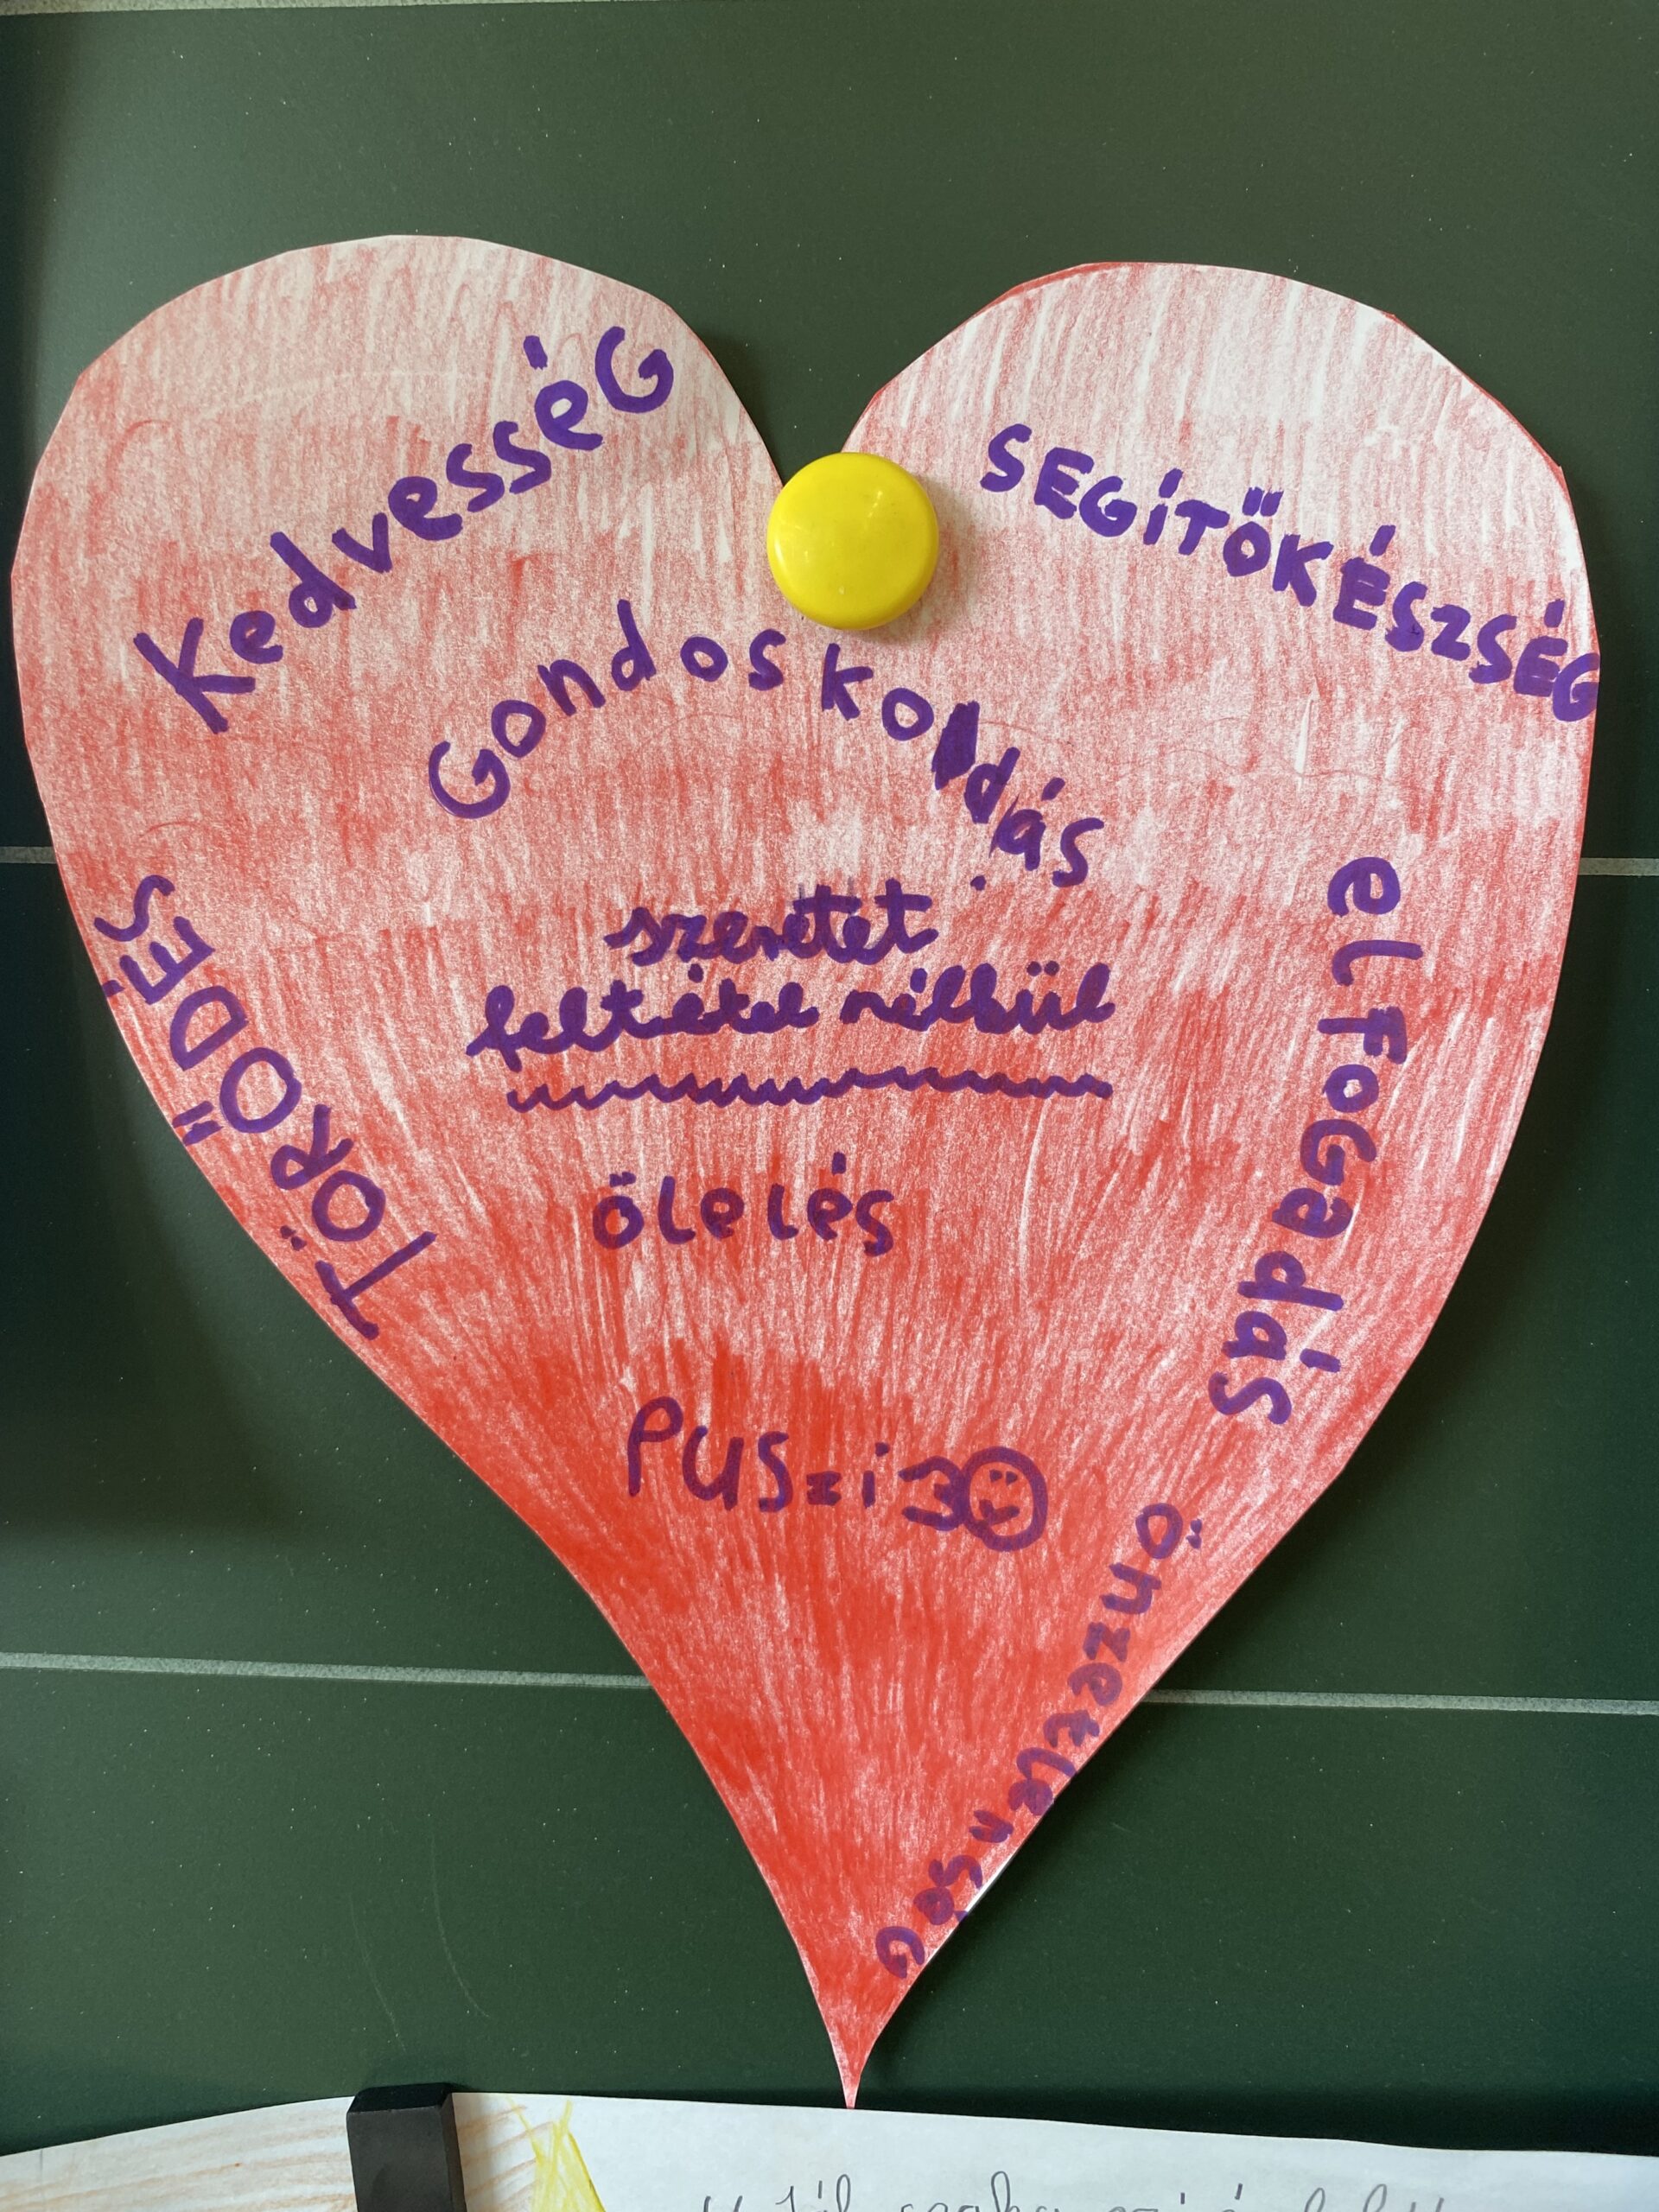 Kedvesség
SEGÍTŐKÉSZSÉG
Gondoskodás
szeretet
feltétel nélkül
TÖRŐDÉS
elFoGadás
ölelés
PUSzi 3
önzetlenséG